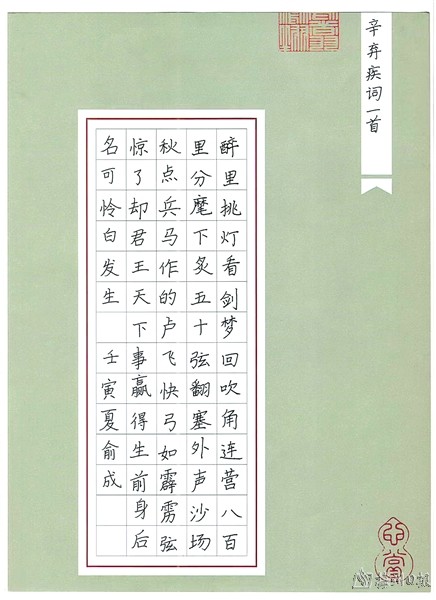 辛弃疾词一首
醉里挑灯看剑梦回吹角连营八百
里分麾下炙五十弦翻塞外声沙场
秋点兵马作的卢飞快弓如霹雳弦
惊了却君王天下事赢得生前身后
名可怜白发生 壬寅夏俞成